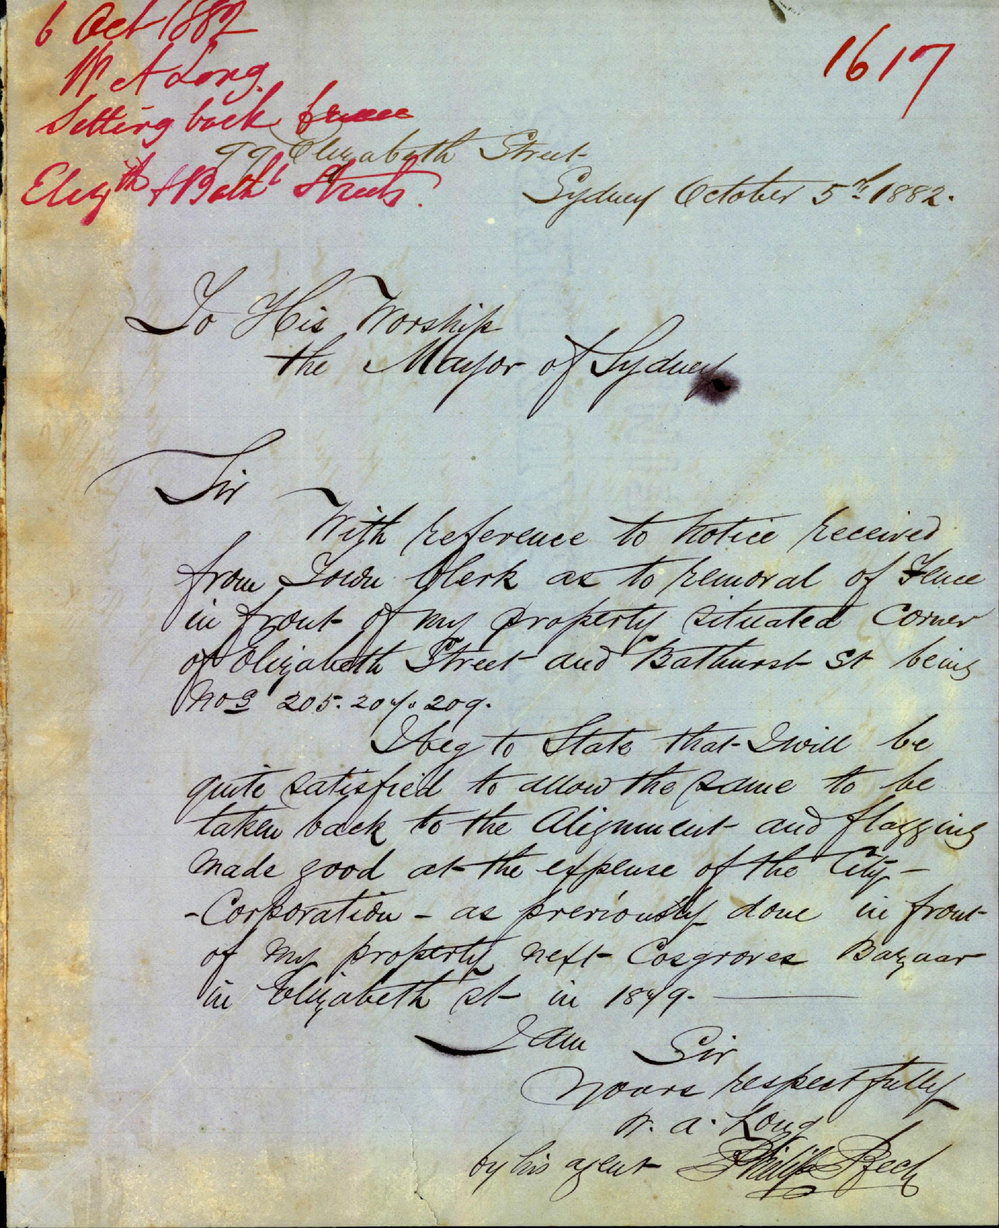 6 Oct 1882
W A Long
Setting back fence
Elizth & Batht Streets.
1617
99 Elizabeth Street
Sydney October 5th 1882.
To His Worship
the Mayor of Sydney
Sir
With reference to notice received
from Town Clerk as to removal of Fence
in front of my property situated Corner
of Elizabeth Street and Bathurst St being
Nos 205. 207. 209.
I beg to State that I will be
quite satisfied to allow the same to be
taken back to the Alignment and flagging
made good at the expense of the City-
-Corporation - as previously done in front
of my property next Cosgroves Bazaar
in Elizabeth St in 1879.
I am Sir
Yours respectfully
W. A. Long
by his agent Philip